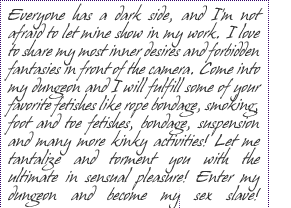 Everyone has a dark side, and I'm not
afraid to let mine show in my work. I love
to share my most inner desires and forbidden
fantasies in front of the camera. Come into
my dungeon and I will fulfill some of your
favorite fetishes like rope bondage, smoking,
foot and toe fetishes, bondage, suspension
and many more kinky activities! Let me
tantalize and torment you with the
ultimate in sensual pleasure! Enter my
dungeon and become my sex slave!